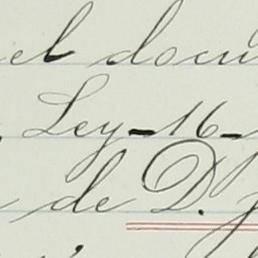 el docu
Ley-16-
de D. J